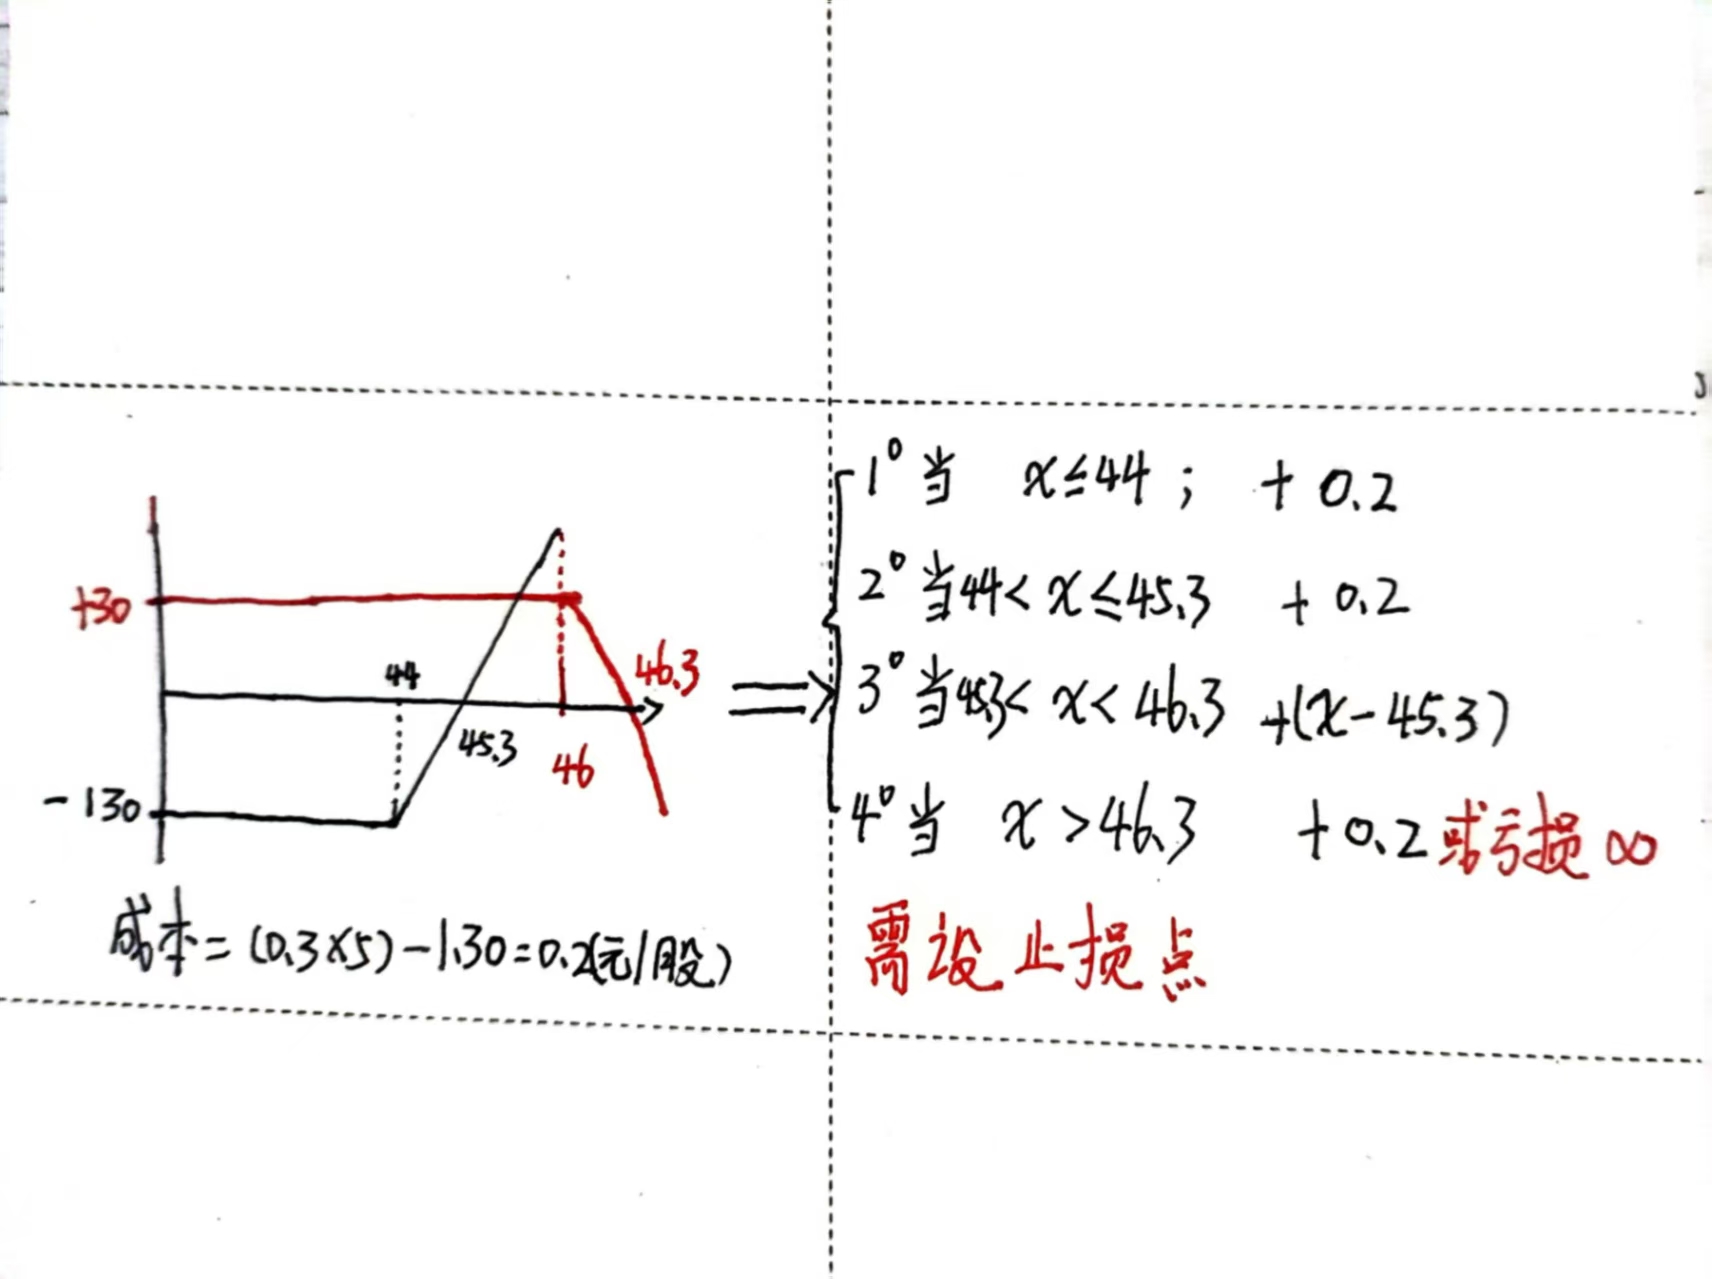 +30
-130
44
45.3
46
46.3
成本=(0.3×5)-1.30=0.2(元/股)
1° 当 x≤44; +0.2
2° 当44<x≤45.3 +0.2
3° 当45.3<x<46.3 +(x-45.3)
4° 当 x>46.3 +0.2或亏损∞
需设止损点